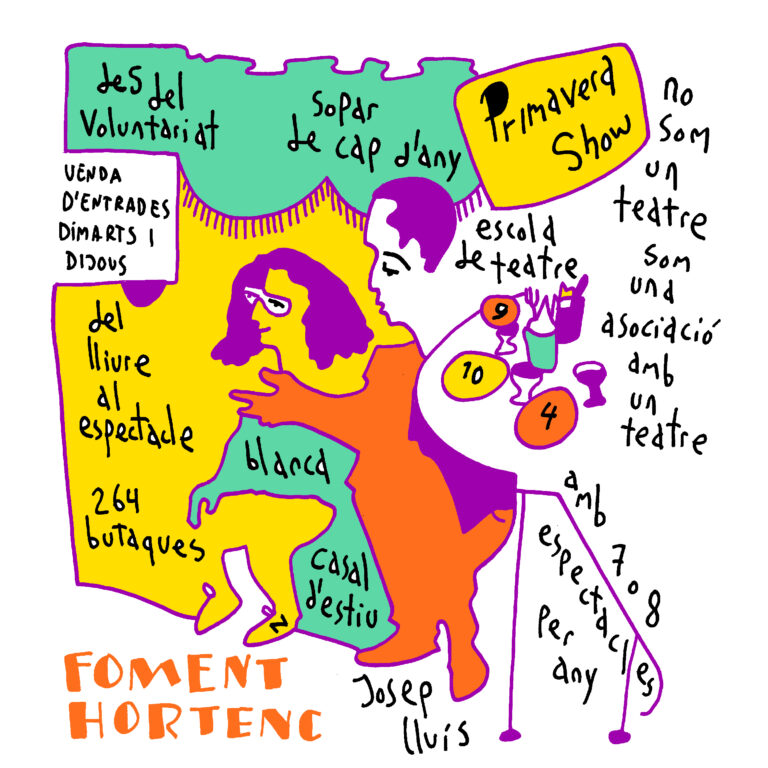 des del
voluntariat
sopar
de cap d'any
Primavera
Show
no
som
un
teatre
som
una
asociació
amb
un
teatre
VENDA
D'ENTRADES
DIMARTS I
DIJOUS
escola
de teatre
del
lliure
al
espectacle
264
butaques
9
10
4
blanca
casal
d'estiu
2
amb
7 o 8
espectacles
per
any
FOMENT
HORTENC
Josep
lluís